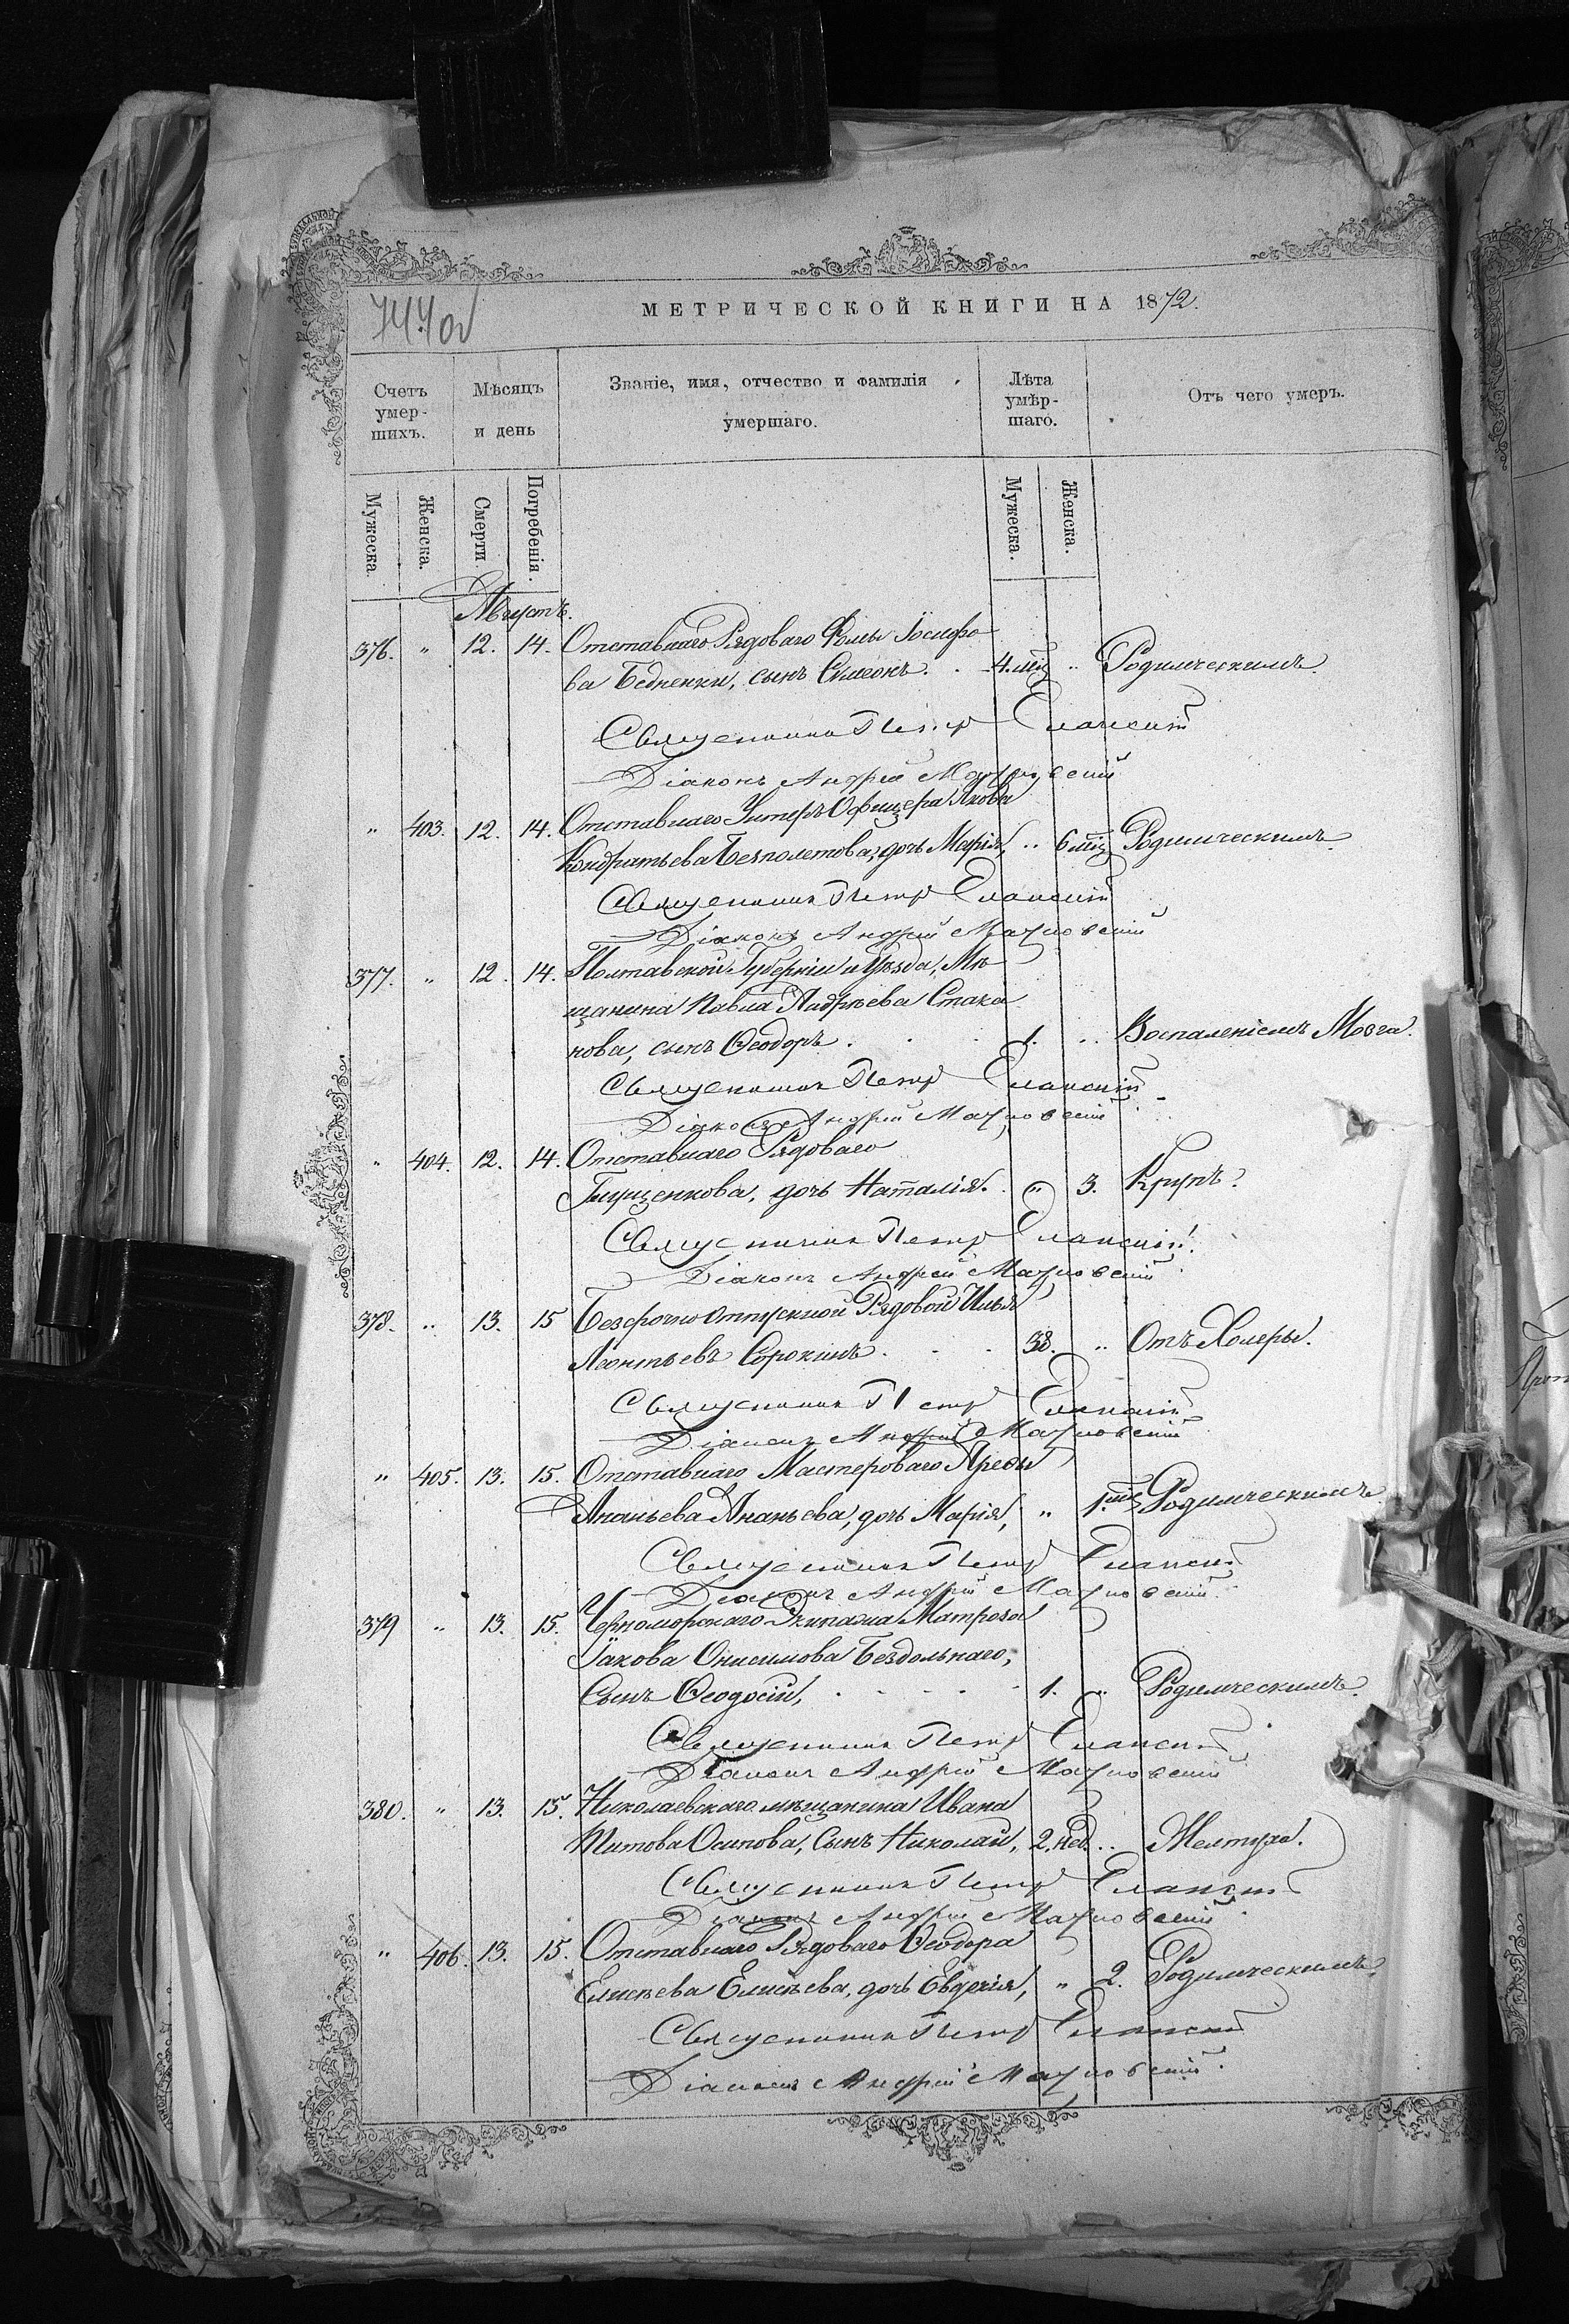 744об
МЕТРИЧЕСКОЙ КНИГИ НА 1872.
Счетъ умер-шихъ.
Мѣсяцъ и день
Званіе, имя, отчество и фамилія умершаго.
Лѣта умѣр-шаго.
Отъ чего умеръ.
Мужеска.
Женска.
Смерти.
Погребенія.
Мужеска.
Женска.
Августъ.
376. " 12. 14. Отставнаго Рядоваго Фомы Іосифо
ва Бедненки, сынъ Симеонъ. 4. мѣц " Родимческимъ.
Священникъ Петръ Еланскій
Діаконъ Андрей
" 403. 12. 14. Отставнаго Унтеръ Офицера Якова
Кондратьева Безполетова, дочь Марія, " 6 мѣц Родимческимъ.
Священникъ Петръ Еланскій
Діаконъ Андрей
377. " 12. 14. Полтавской Губерніи и Уѣзда, Мѣ
щанина Павла Андрѣева Стака
нова, сынъ Ѳеодоръ. 1. " Воспаленіемъ Мозга.
Священникъ Петръ Еланскій
Діаконъ Андрей
" 404. 12. 14. Отставнаго Рядоваго
дочь Наталія. " 3. Крупъ.
Священникъ Петръ Еланскій
Діаконъ Андрей
378. " 13. 15 Безсрочно отпускной Рядовой Илья
Леонтьевъ Сорокинъ. 38. " Отъ Холеры.
Священникъ Петръ Еланскій
Діаконъ Андрей
" 405. 13. 15. Отставнаго Мастероваго Арефы
Ананьева Ананьева, дочь Марія, " 1. мѣц Родимческимъ
Священникъ Петръ Еланскій
Діаконъ Андрей
379 " 13. 15. Черноморскаго Экипажа Матроза
Іакова Онисимова Бездольнаго,
Сынъ Ѳеодосій, 1. " Родимческимъ.
Священникъ Петръ Еланскій
Діаконъ Андрей
380. " 13. 15. Николаевскаго мѣщанина Ивана
Титова Осипова, Сынъ Николай, 2. нед. " Желтуха.
Священникъ Петръ Еланскій
Діаконъ Андрей
" 406. 13. 15. Отставнаго Рядоваго Ѳеодора
Елисѣева Елисѣева, дочь Евдокія, " 2. Родимческимъ.
Священникъ Петръ Еланскій
Діаконъ Андрей